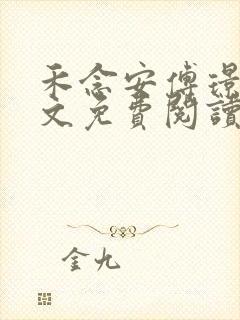 禾念安傅璟
文免費閱讀
金九